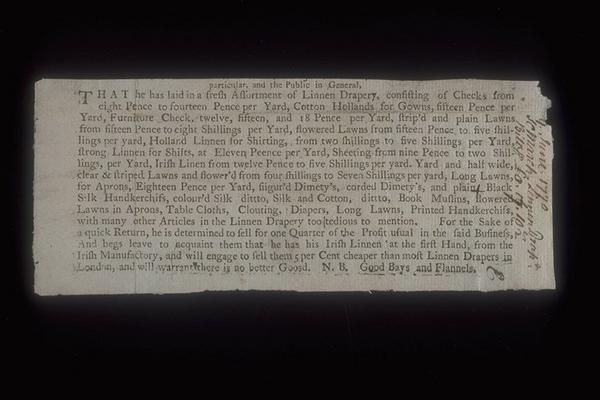 particular, and the Public in General,
THAT he has laid in a fresh Assortment of Linnen Drapery, consisting of Checks from
eight Pence to fourteen Pence per Yard, Cotton Hollands for Gowns, fifteen Pence per
Yard, Furniture Check, twelve, fifteen, and 18 Pence per Yard, strip'd and plain Lawns
from fifteen Pence to eight Shillings per Yard, flowered Lawns from fifteen Pence to five shil-
lings per yard, Holland Linnen for Shirting, from two shillings to five Shillings per Yard,
strong Linnen for Shifts, at Eleven Peence per Yard, Sheeting from nine Pence to two Shil-
lings, per Yard, Irish Linen from twelve Pence to five Shillings per yard. Yard and half wide,
clear & striped Lawns and flower'd from four shillings to Seven Shillings per yard, Long Lawns
for Aprons, Eighteen Pence per Yard, figur'd Dimety's, corded Dimety's, and plain Black
Silk Handkerchifs, colour'd Silk dittto, Silk and Cotton, dittto, Book Muslins, flowered
Lawns in Aprons, Table Cloths, Clouting, Diapers, Long Lawns, Printed Handkerchifs,
with many other Articles in the Linnen Drapery tootedious to mention. For the Sake of
a quick Return, he is determined to sell for one Quarter of the Profit usual in the said Business,
And begs leave to acquaint them that he has his Irish Linnen at the first Hand, from the
Irish Manufactory, and will engage to sell them 5 per Cent cheaper than most Linnen Drapers in
London, and will warrant there is no better Goosd. N. B. Good Bays and Flannels.
June 1770